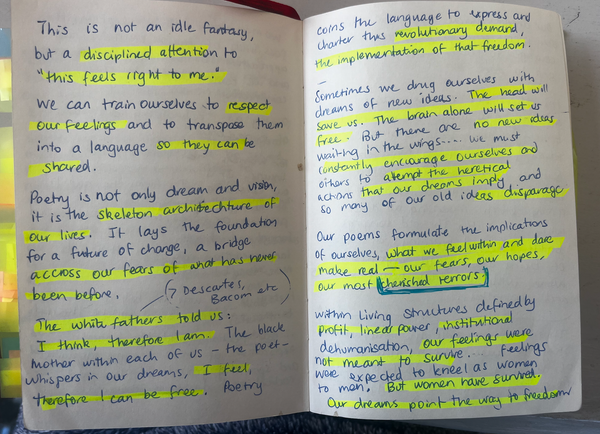 This is not an idle fantasy,
but a disciplined attention to
"this feels right to me."
We can train ourselves to respect
our feelings and to transpose them
into a language so they can be
shared.
Poetry is not only dream and vision,
it is the skeleton architechture of
our lives. It lays the foundation
for a future of change, a bridge
accross our fears of what has never
been before.
(→ Descartes,
Bacom etc)
The white fathers told us:
I think, therefore I am. The black
mother within each of us - the poet -
whispers in our dreams, I feel,
therefore I can be free. Poetry
coins the language to express and
charter this revolutionary demand,
the implementation of that freedom.
—
Sometimes we drug ourselves with
dreams of new ideas. The head will
save us. The brain alone will set us
free. But there are no new ideas
waiting in the wings..... we must
constantly encourage ourselves and
others to attempt the heretical
actions that our dreams imply and
so many of our old ideas disparage
Our poems formulate the implications
of ourselves, what we feel within and dare
make real — our fears, our hopes,
our most cherished terrors.
within living structures defined by
profit, linear power, institutional
dehumanisation, our feelings were
not meant to survive..... feelings
were expected to kneel as women
to man. But women have survived.
Our dreams point the way to freedom